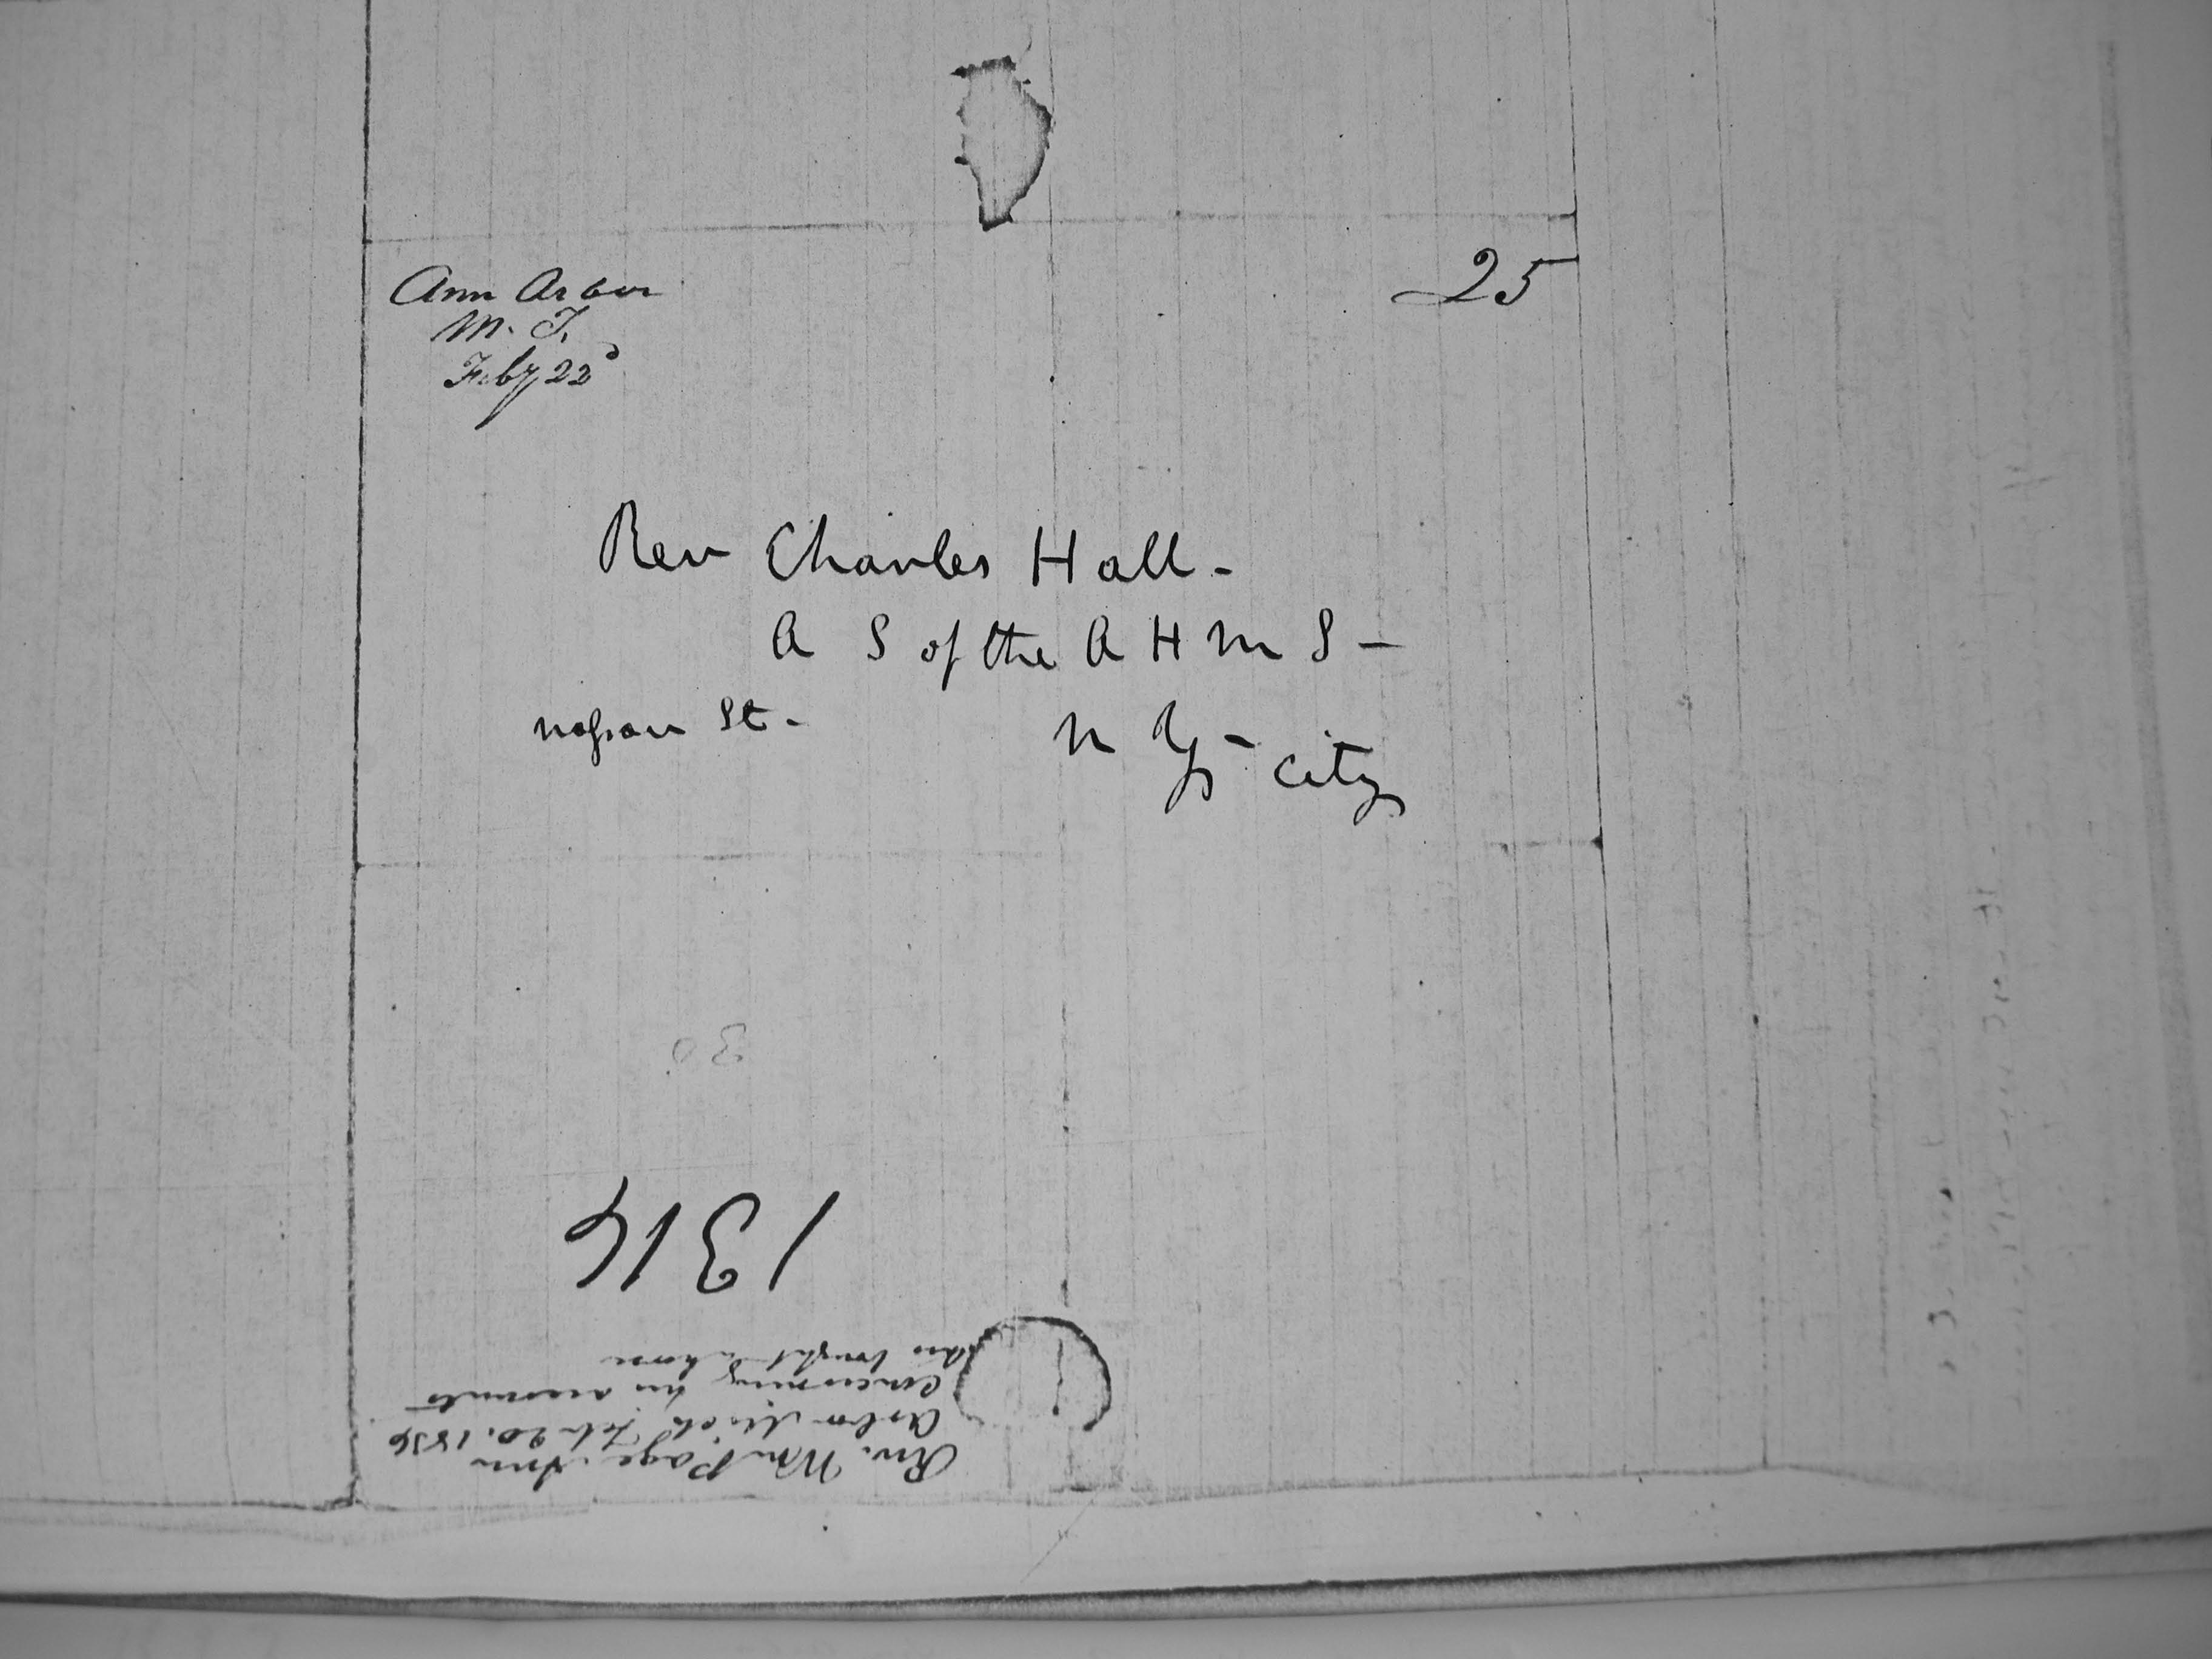 Ann Arbor
M. T.
Feby 22d
25
Rev Charles Hall -
A S of the A H M S -
Nassau St -
N Y - City
30
1314
Rev. Wm Page, Ann
Arbor Mich Feb 20. 1836
Concerning his accounts
has bought a horse